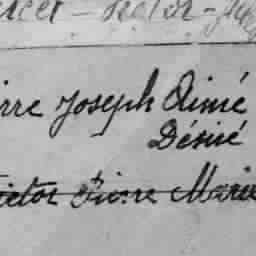 rre Joseph Aimé
Désiré
ictor Pierre Marie